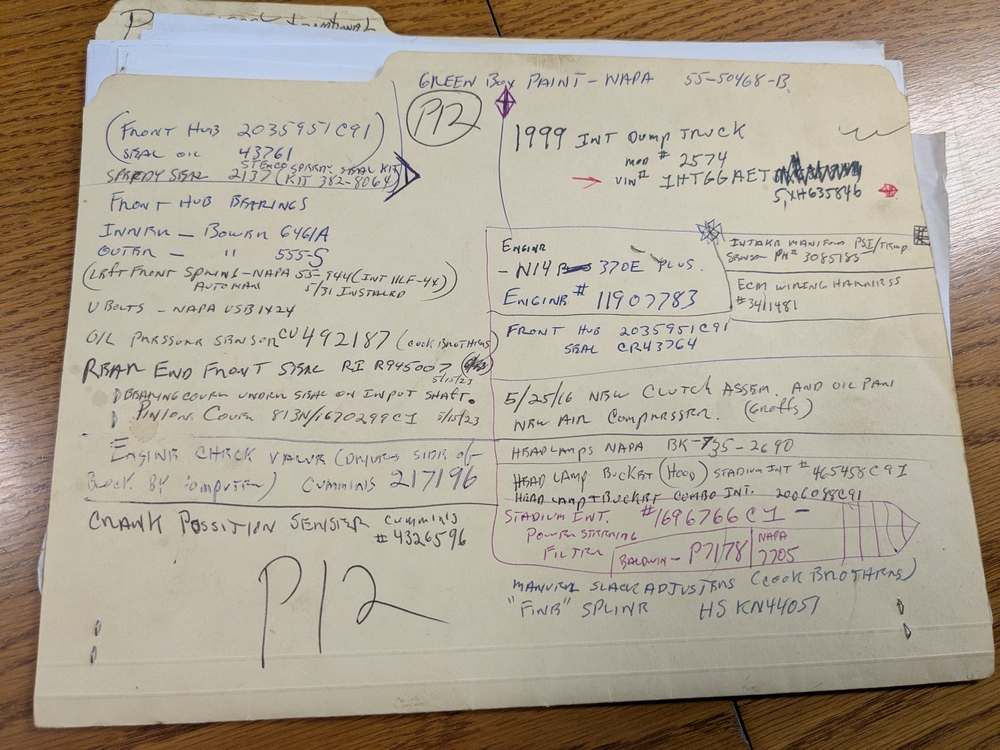 GREEN BOX PAINT - NAPA 55-50468-B.
P12
(FRONT HUB 2035951C91)
SEAL OIL 43761
STEMCO
SPEEDY SEAL 2137 (SPEEDY SEAL KIT
KIT 382-8064)
FRONT HUB BEARINGS
INNER - BOWER 6461A
OUTER - " 555-S
(LEFT FRONT SPRING - NAPA 55-944 (INT HLF-44)
5/31 INSTALLED
U BOLTS - NAPA USB 1424
OIL PRESSURE SENSOR CU 492187 (COOK BROTHERS)
REAR END FRONT SEAL RI R945007
5/15/23
BEARING COVER UNDER SEAL ON INPUT SHAFT.
PINION COVER 813N/1670299C1 5/15/23
ENGINE CHECK VALVE (DRIVERS SIDE OF
BLOCK BY COMPUTER) CUMMINIS 217196
CRANK POSSITION SENISTER CUMMINIS
# 4326596
P12
1999 INT DUMP TRUCK
MOD # 2574
VIN # 1HTGGAET
5XH635846
ENGINE
- N14 370E PLUS.
ENGINE # 11907783
INTAKE MANIFOLD PSI/TEMP
SENSOR PN# 3085185
ECM WIRING HARNIESS
# 3411481
FRONT HUB 2035951C91
SEAL CR43764
5/25/16 NEW CLUTCH ASSEM. AND OIL PAN
NEW AIR COMPRESSER. (Groffs)
HEADLAMPS NAPA BK-735-2690
HEAD LAMP BUCKET (HOOD) STADIUM INT # 465458C91
HEAD LAMP + BUCKET COMBO INT. 2006088C91
STADIUM INT. # 1696766C1 -
POWER STEERING
FILTER BALDWIN - P7178 NAPA 7705
MANUEL SLACK ADJUSTERS (COOK BROTHERS)
"FINE" SPLINE HS KN44051